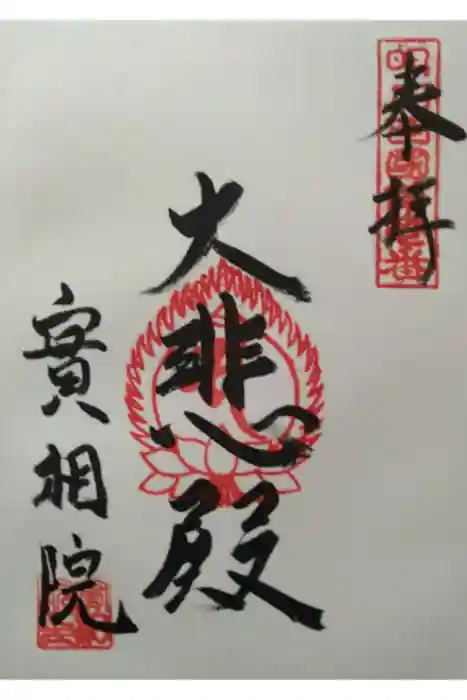 奉拝
大悲殿
實相院